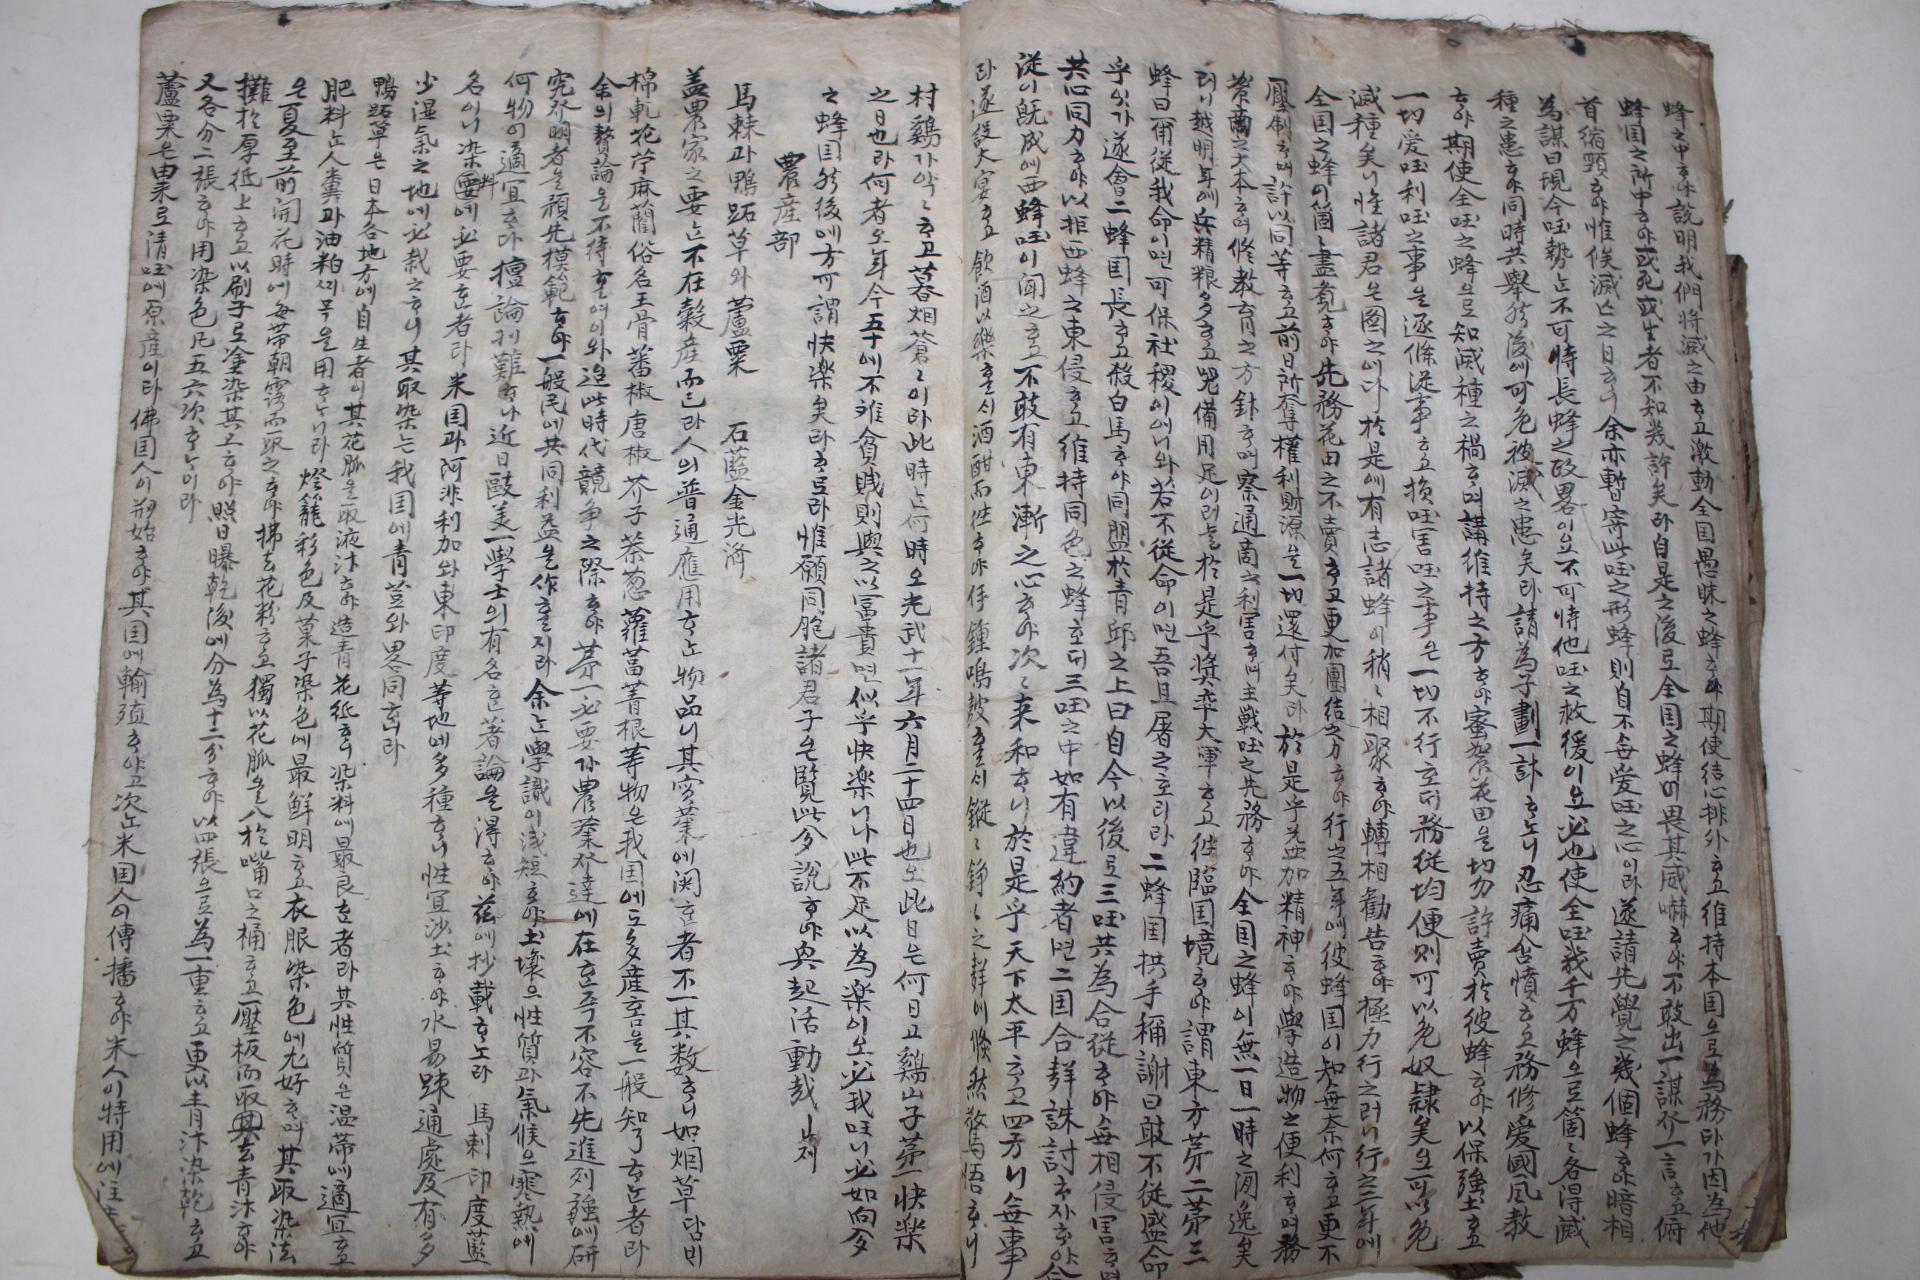 蜂之中ᄒᆞ야說明我們將滅之由ᄒᆞ고激動全国愚昧之蜂ᄒᆞ야期使結心排外ᄒᆞ고維持本国으로為務타가因為他
蜂国之所中ᄒᆞ야或死或生者不知幾許矣라自是之後로全国之蜂이畏其威嚇ᄒᆞ야不敢出一謀발一言ᄒᆞ고俯
首縮頸ᄒᆞ야惟俟滅亡之日ᄒᆞ니余亦暫寄此国之形蜂則自不無愛国之心이라遂請先覺之幾個蜂ᄒᆞ야暗相
為謀曰現今国勢ᄂᆞᆫ不可恃長蜂之政畧이오不可恃他国之救援이오必也使全国幾千万蜂으로箇箇各得滅
種之患ᄒᆞ야同時共擧然後에可免被滅之患矣라請為子劃一計ᄒᆞ노니忍痛含憤ᄒᆞ고務修愛國風教
ᄒᆞ야期使全国之蜂으로知滅種之禍ᄒᆞ며講維持之方ᄒᆞ야蜜
一切愛国利国之事을逐條從事ᄒᆞ고損国害国之事은一切不行호ᄃᆡ務從均便則可以免奴隷矣오可以免
滅種矣니惟諸君은図之이다於是에有志諸蜂이稍稍相聚ᄒᆞ야轉相勸告ᄒᆞ야極力行之러니行之二年에
全国之蜂이箇箇盡覺ᄒᆞ야先務花田之不賣ᄒᆞ고更加團結之力ᄒᆞ야行之五年에彼蜂国이知無奈何ᄒᆞ고更不
壓制ᄒᆞ며許以同等ᄒᆞ고前日所奪權利財源을一切還付矣라於是乎益加精神ᄒᆞ야學造物之便利ᄒᆞ며務
之大本ᄒᆞ며修教育之方針ᄒᆞ며察通商之利害ᄒᆞ며主戰国之先務ᄒᆞ야全国之蜂이無一日一時之閒逸矣
러니越明年에兵精粮多ᄒᆞ고器備用足이러늘於是乎奬率大軍ᄒᆞ고徃臨国境ᄒᆞ야謂東方第二第三
蜂曰爾從我命이면可保社稷이어니와若不從命이면吾且屠之호리라二蜂国拱手稱謝曰敢不從盛命
乎잇가遂會二蜂国長ᄒᆞ고殺白馬ᄒᆞ야同盟於青邱之上曰自今以後로三国共為合從ᄒᆞ야無相侵害ᄒᆞ며
共心同力ᄒᆞ야以拒西蜂之東侵ᄒᆞ고維持同色之蜂호ᄃᆡ三国之中如有違約者면二国合群誅討ᄒᆞ자ᄒᆞ야合
從이旣成에西蜂国이聞之ᄒᆞ고不敢有東漸之心ᄒᆞ야次次来和ᄒᆞ니於是乎天下太平ᄒᆞ고四方니無事
라遂設大宴ᄒᆞ고飮酒以樂ᄒᆞᆯᄉᆡ酒酣而
村鷄가악악ᄒᆞ고暮烟蒼蒼이라此時ᄂᆞᆫ何時오光武十一年六月二十四日也오此日은何日고鷄山子第一快樂
之日也라何者오年今五十에不離貧賎則與之以冨貴면似乎快樂이나此不足以為樂이오必我国니必如向夢
之蜂国然後에方可謂快樂矣라ᄒᆞ로라惟願同胞諸君子은覽此夢說ᄒᆞ야興起活動哉ㄴ져
農産部
馬棘과鴨跖草와蘆粟　石藍金光濟
蓋農家之要ᄂᆞᆫ不在穀産而已라人의普通應用ᄒᆞᄂᆞᆫ物品니其實業에関ᄒᆞᆫ者不一其数ᄒᆞ니如烟草담ᄇᆡ
棉軋花苧麻藺俗名王骨蕃椒唐椒芥子茶葱蘿葍菁根等物은我国에도多産홈은一般知了ᄒᆞᄂᆞᆫ者라
余의贅論을不待ᄒᆞ려이와迨此時代競争之際ᄒᆞ야第一必要가農業發達에在ᄒᆞᆫ즉不容不先進列強에硏
究發明者을預先模範ᄒᆞ야一般民에共同利益을作ᄒᆞᆯ지라余ᄂᆞᆫ學識이浅短ᄒᆞ야土壤으性質과氣候으寒熱에
何物이適宜ᄒᆞ다擅論키難ᄒᆞ나近日歐美一學士의有名ᄒᆞᆫ著論을得ᄒᆞ야茲에抄載ᄒᆞ노라　馬棘印度藍
名이니染料要에必要ᄒᆞᆫ者라米国과阿非利加와東印度等地에多種ᄒᆞ니性宜沙土ᄒᆞ야水易疎通處及有多
少湿氣之地에必栽之ᄒᆞ니其取染는我国에青䓝와畧同ᄒᆞ니라
鴨跖草은日本各地方에自生者이其花瓣을取液汁ᄒᆞ야造青花紙ᄒᆞ니染料에最良ᄒᆞᆫ者라其性質은温帶에適宜ᄒᆞ고
肥料ᄂᆞᆫ人糞과油粕ᄭᆡ묵을用ᄒᆞᄂᆞ니라　燈籠彩色及菓子染色에最鮮明ᄒᆞ고衣服染色에尤好ᄒᆞ며其取染法
은夏至前開花時에每帶朝露而取之ᄒᆞ야拂去花粉ᄒᆞ고獨以花瓣을入於嘴口之桶ᄒᆞ고壓板而取其去青汁ᄒᆞ야
攤於厚紙上ᄒᆞ고以刷子로塗染其上ᄒᆞ야照日曝乾後에分為十二分ᄒᆞ야以四張으로為一重ᄒᆞ고更以青汁染乾ᄒᆞ고
又各分二張ᄒᆞ야用染色凡五六次ᄒᆞᄂᆞ이라
蘆粟은由来로清国에原産이라佛国人이刱始ᄒᆞ야其国에輸殖ᄒᆞ얏고次ᄂᆞᆫ米国人이傳播ᄒᆞ야米人이特用에注